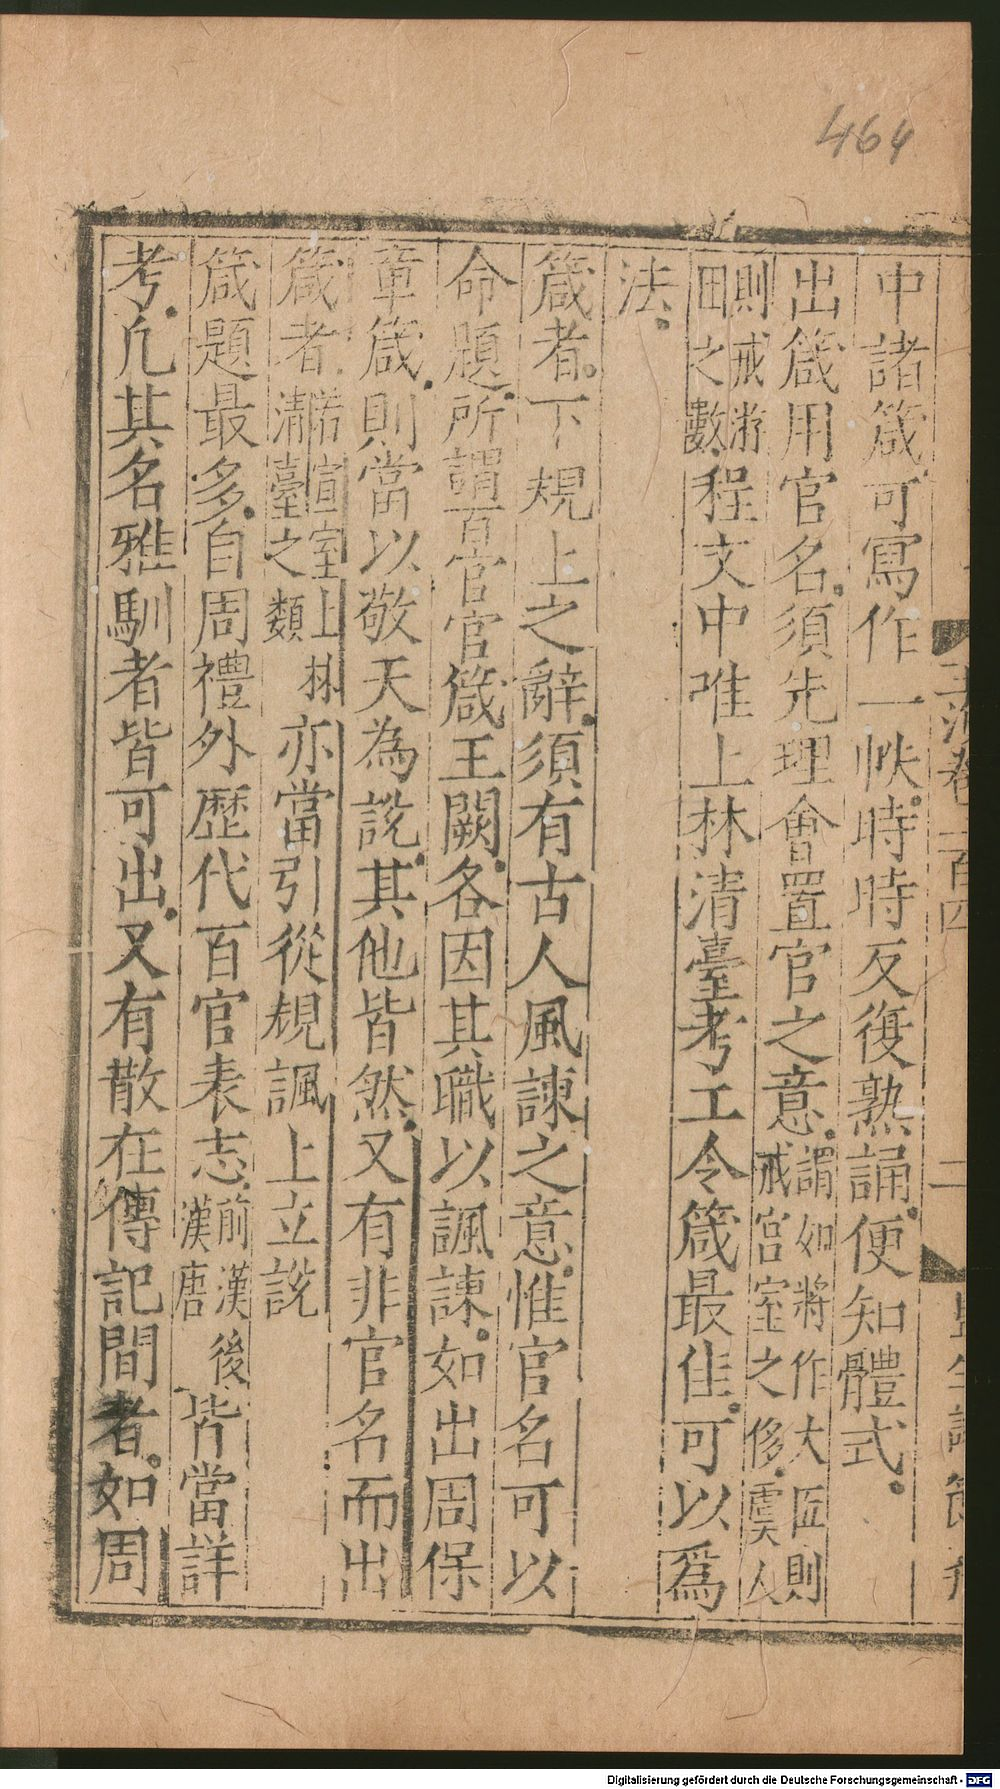 464
中諸箴可寫作一帙時時反復熟誦便知體式
出箴用官名須先理會置官之意謂如將作大匠則戒宮室之侈虞人
則戒游田之數程文中唯上林清臺考工令箴最佳可以爲
法
箴者下規上之辭須有古人風諫之意惟官名可以
命題所謂百官官箴王闕各因其職以諷諫如出周保
章箴則當以敬天為說其他皆然又有非官名而出
箴者若宣室上林清臺之類亦當引從規諷上立說
箴題最多自周禮外歷代百官表志前漢後漢唐皆當詳
考凡其名雅馴者皆可出又有散在傳記間者如周
玉海卷二百四
二
Digitalisierung gefördert durch die Deutsche Forschungsgemeinschaft - DFG